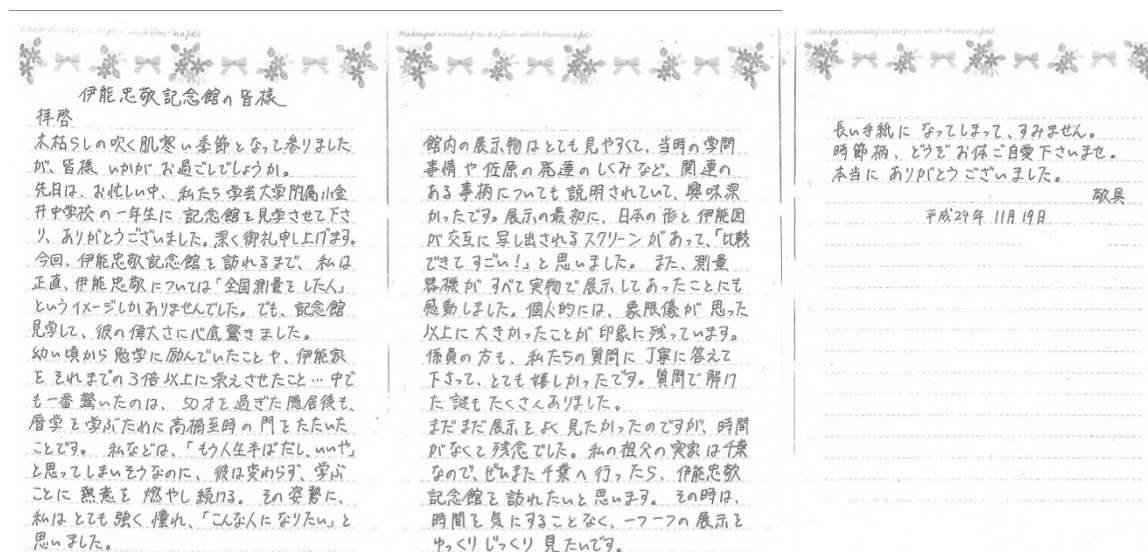 伊能忠敬記念館の皆様
拝啓
木枯らしの吹く肌寒い季節となって参りました
が、皆様 いかがお過ごしでしょうか。
先日は、お忙しい中、私たち学芸大学附属小金
井中学校の一年生に記念館を見学させて下さ
り、ありがとうございました。深く御礼申し上げます。
今回、伊能忠敬記念館を訪れるまで、私は
正直、伊能忠敬については「全国測量をした人」
というイメージしかありませんでした。でも、記念館
見学して、彼の偉大さに心底驚きました。
幼い頃から勉学に励んでいたことや、伊能家
をそれまでの3倍以上に栄えさせたこと…中で
も一番驚いたのは、50才を過ぎた隠居後も、
暦学を学ぶために高橋至時の門をたたいた
ことです。私などは、「もう人生半ばだし、いいや」
と思ってしまいそうなのに、彼は変わらず、学ぶ
ことに熱意を燃やし続ける。その姿勢に、
私はとても強く憧れ、「こんな人になりたい」と
思いました。
The bouquet was made from the flower which blooms in a field.
館内の展示物はとても見やすくて、当時の学問
事情や佐原の発達のしくみなど、関連の
ある事柄についても説明されていて、興味深
かったです。展示の最初に、日本の形と伊能図
が交互に写し出されるスクリーンがあって、「比較
できてすごい!」と思いました。また、測量
器機がすべて実物で展示してあったことにも
感動しました。個人的には、象限儀が思った
以上に大きかったことが印象に残っています。
係員の方も、私たちの質問に丁寧に答えて
下さって、とても嬉しかったです。質問で解け
た謎もたくさんありました。
まだまだ展示をよく見たかったのですが、時間
がなくて残念でした。私の祖父の実家は千葉
なので、ぜひまた千葉へ行ったら、伊能忠敬
記念館を訪れたいと思います。その時は、
時間を気にすることなく、一つ一つの展示を
ゆっくりじっくり見たいです。
The bouquet was made from the flower which blooms in a field.
長い手紙になってしまって、すみません。
時節柄、どうぞお体ご自愛下さいませ。
本当にありがとうございました。
敬具
平成29年11月19日